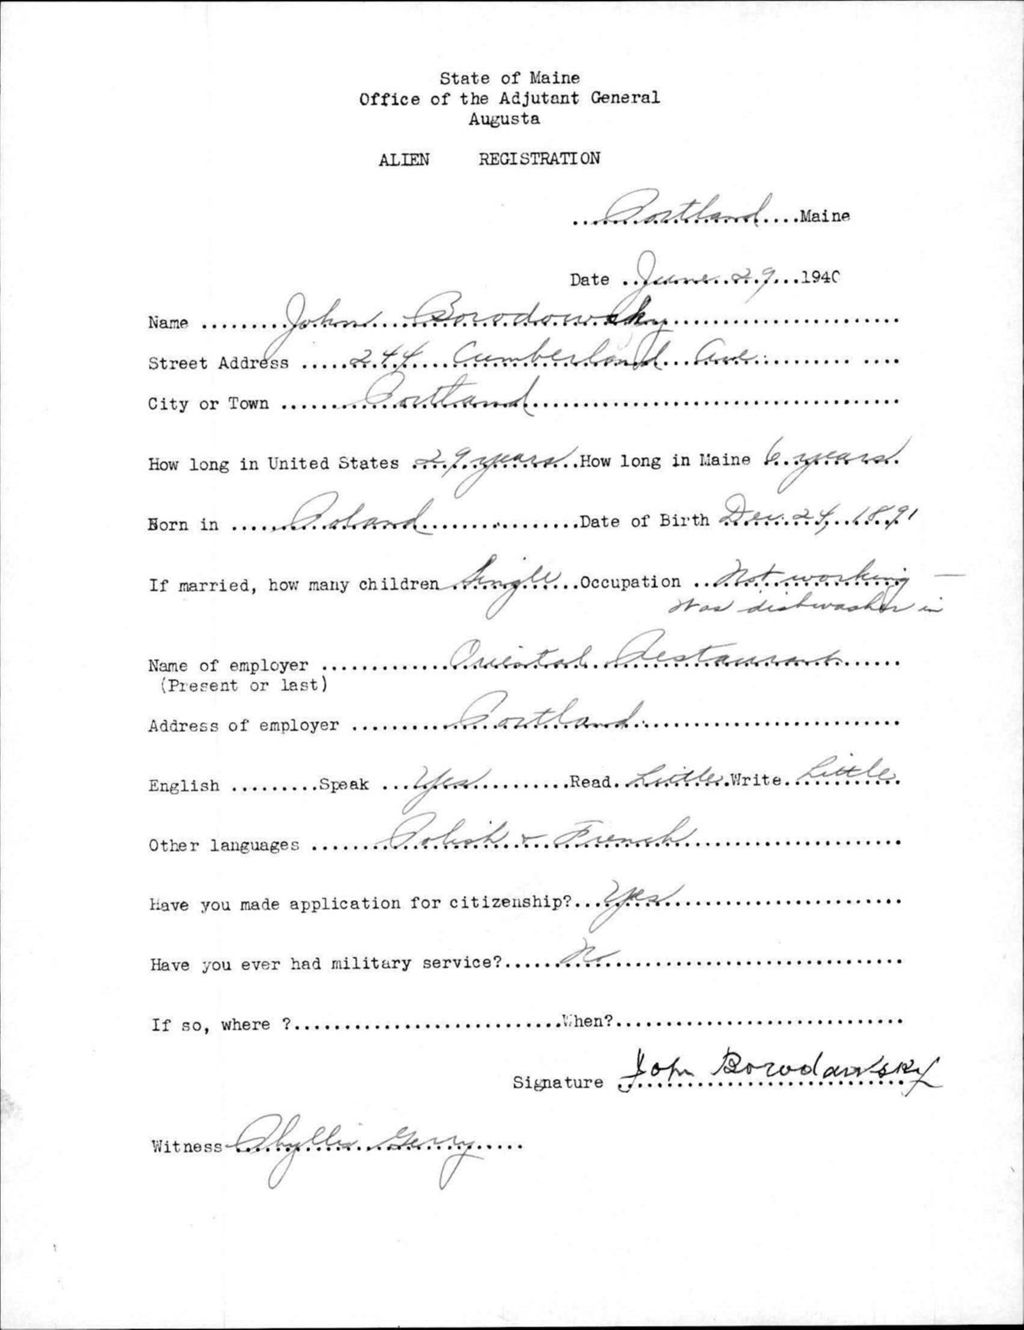 State of Maine
Office of the Adjutant General
Augusta
ALIEN REGISTRATION
...Portland....Maine
Date ..June 29...1940
Name ........John Borodowsky........................
Street Address .....244 Cumberland Ave.............. ....
City or Town ........Portland.....................................
How long in United States ..29 years..How long in Maine 6 years.
Born in .....Poland..................Date of Birth Dec. 24, 1891
If married, how many children..Single..Occupation ..Not working —
Was dishwasher in
Name of employer ............Oriental Restaurant......
(Present or last)
Address of employer ..........Portland..........................
English .........Speak ...Yes..........Read.Little.Write.Little.
Other languages .......Polish & French......................
Have you made application for citizenship?...Yes........................
Have you ever had military service?.....No..............................
If so, where ?...........................When?.............................
Signature John Borodawsky
Witness Phyllis Gerry.....